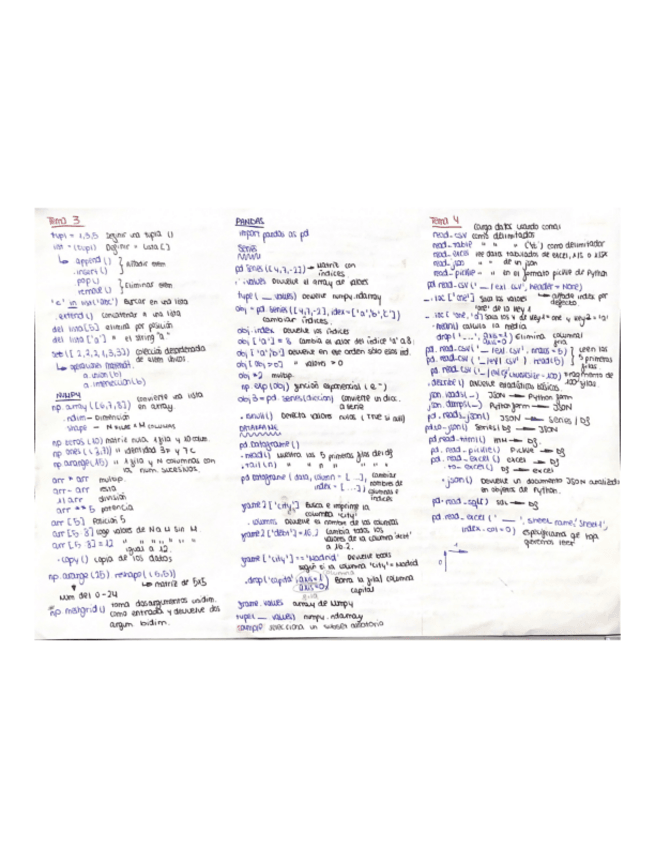 Tema 3
tupl = 1,3,5 Definir una tupla ()
list = (tupl) Definir = Lista []
append() } Añadir elem
.insert()
.pop() } Eliminar elem
remove()
'c' in list('abc') Buscar en una lista
.extend() Concatenar a una lista
del lista [5] elimina por posición
del lista ['a'] " el string "a"
set ([2,2,2,1,3,3]) colección desordenada
de elem únicos
operaciones
a.union(b)
a.intersection(b)
NUMPY
np.array ([6,7,8]) convierte una lista
en array.
.ndim - Dimensión
shape - N FILAS x M COLUMNAS
np.zeros (10) matriz nula, 1 fila y 10 colum.
np.ones (3,7) " identidad 3F y 7C
np.arange(15) " 1 fila y N columnas con
los num. sucesivos.
arr * arr multip.
arr - arr resta
1/arr división
arr ** 5 potencia
arr [5] Posición 5
arr [5:8] coge valores de N a M sin M.
arr [5:8] = 12 " " " " " "
iguala a 12.
.copy() copia de los datos
np.arange (25) reshape((5,5))
matriz de 5x5
Num del 0-24
np.meshgrid() toma dos argumentos unidim.
como entrada y devuelve dos
argum bidim.
PANDAS
import pandas as pd
Series
pd.Series ([4,7,-2]) → Matriz con
índices
.values Devuelve el array de valores
type( .values) Devuelve numpy.ndarray
obj = pd.Series ([4,7,-2], index=['a','b','c'])
cambiar índices.
obj.index Devuelve los índices
obj ['a'] = 8 cambia el valor del índice 'a' a 8.
obj ['a','b'] devuelve en ese orden sólo esos ind.
obj [obj > 0] " valores > 0
obj * 2 multip.
np.exp(obj) función exponencial (e^)
obj3 = pd.Series(diccion) convierte un dicc.
a serie
.isnull() Detecta valores nulos (TRUE si null)
DATAFRAME
pd.DataFrame()
.head() Muestra las 5 primeras filas del df
.tail(n) " " n " " "
pd.DataFrame (data, column = [...], cambiar
index = [...]) nombres de
columnas e
índices
frame2 ['city'] Busca e imprime la
columna 'city'
.columns Devuelve el nombre de las columnas
frame2 ['debt'] = 16.2 cambia todos los
valores de la columna 'debt'
a 16.2.
frame ['city'] == 'Madrid' Devuelve bools
según si la columna 'city' = Madrid
.drop('capital', axis=1) Borra la fila/columna
axis=0 capital
fila
frame.values array de Numpy
type( .values) numpy.ndarray
sample selecciona un subset aleatorio
Tema 4
Carga datos usando comas
read_csv como delimitador
read_table " " ('\t') como delimitador
read_excel lee datos tabulados de EXCEL, XLS o XLSX
read_json " " de un json
read_pickle " en el formato pickle de Python
pd.read_csv ('_/ex1.csv', header = None)
añade index por
defecto
.loc ['one'] Saca los valores
'one' de la key 1
.mean() calcula la media
.drop('...', axis=1) Elimina columna/
axis=0 fila.
pd.read_csv ('_/ex1.csv', nrows = 5) } leen las
pd.read_csv ('_/ex1.csv').head(5) 5 primeras
filas
pd.read_csv ('_/ex6.csv', chunksize = 100) fragmento de
100 filas
.describe() Devuelve estadísticas básicas.
json.loads(_) JSON → Python form
json.dumps(_) Python form → JSON
pd.read_json() JSON → Series / Df
pd.to_json() Series/Df → JSON
pd.read_html() HTML → Df.
pd.read_pickle() PICKLE → Df
pd.read_excel() excel → Df
.to_excel() Df → excel
.json() Devuelve un documento JSON analizado
en objetos de Python.
pd.read_sql() SQL → Df
pd.read_excel ('___', sheet_name='Sheet1',
index_col=0) especificamos q hoja
queremos leer
0
1